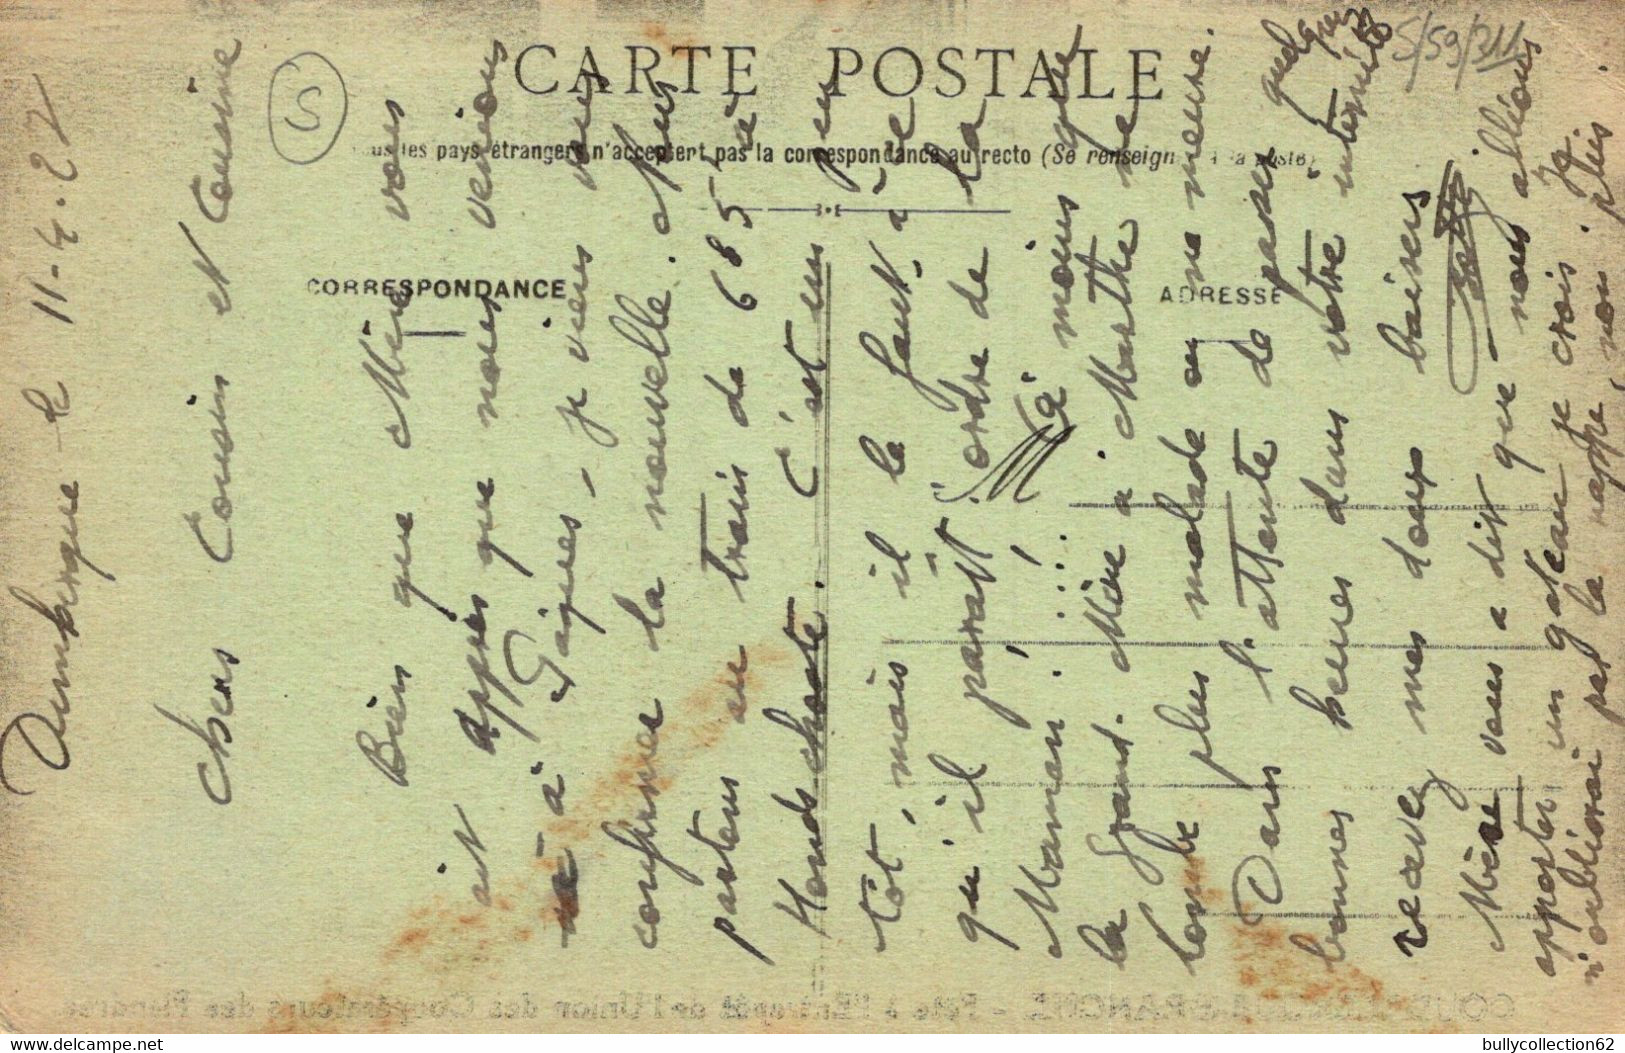 CARTE POSTALE
Tous les pays étrangers n'acceptent pas la correspondance au recto (Se renseigner à la poste)
CORRESPONDANCE
ADRESSE
S
5/59/311
Dunkerque le 11-4-27
Chers Cousin et Cousine
Bien que Mère vous
ait appris que nous venions
à Pâques, je viens vous
confirmer la nouvelle. Nous
partons au train de 6 h 5 à
Hondschoote. C'est un peu
tôt, mais il le faut à ce
qu'il paraît. ordre de la
Maman !!!... à moins que
la Grand. Mère à Marthe ne
tombe plus malade ou ne meure.
Dans l'attente de passer quelques
bonnes heures dans votre intimité
recevez mes doux baisers
Mère vous a dit que nous allions
apporter un gateau je crois. Je
n'oublierai pas la nappe, non plus.
COUDEKERQUE-BRANCHE - Fête à l'Entrepôt de l'Union des Coopérateurs des Flandres.
bullycollection62